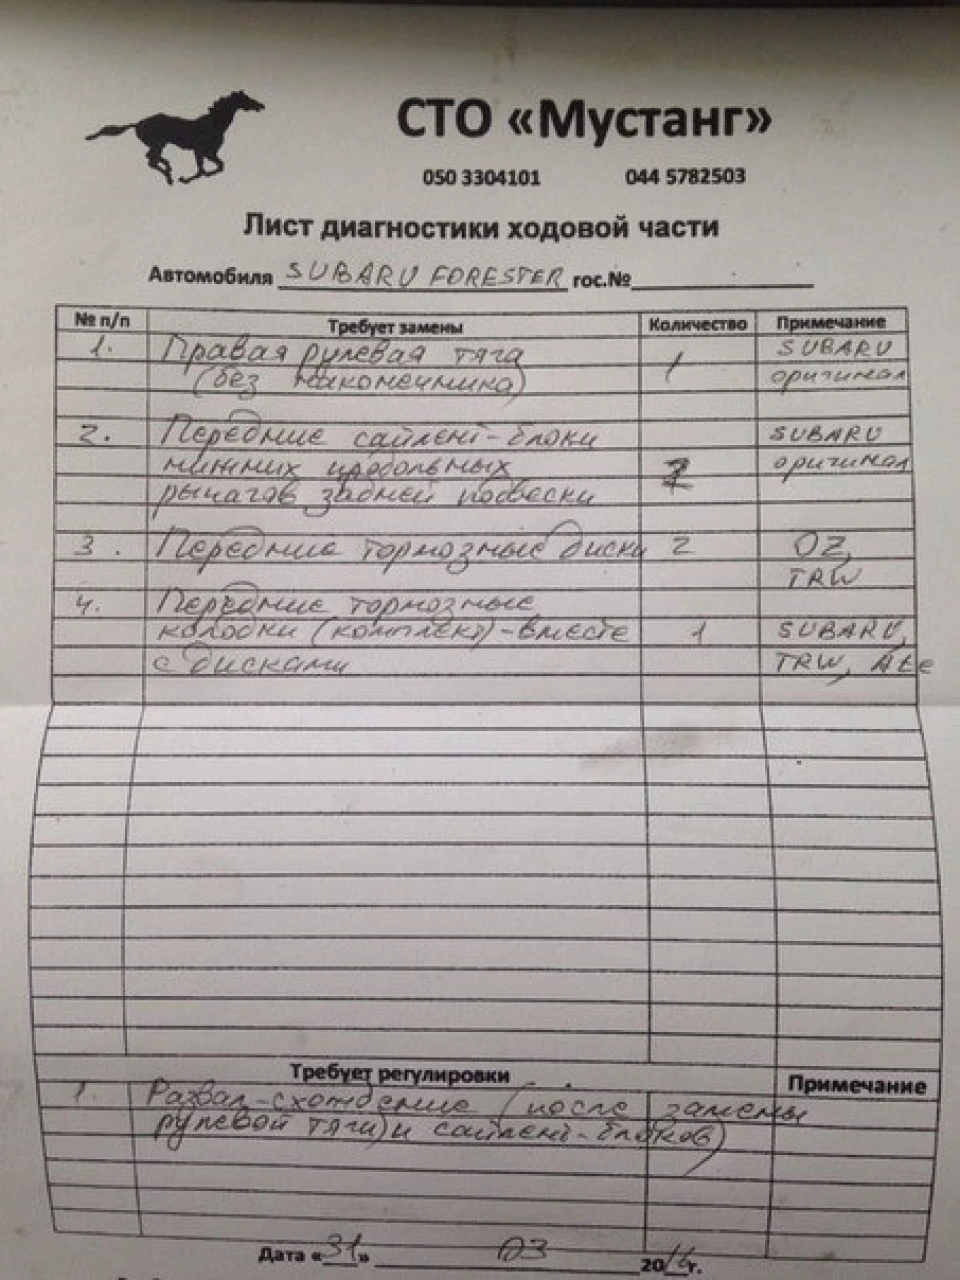 СТО «Мустанг»
050 3304101 044 5782503
Лист диагностики ходовой части
Автомобиля SUBARU FORESTER гос.№
№ п/п Требует замены Количество Примечание
1. Правая рулевая тяга SUBARU
(без наконечника) 1 оригинал
2. Передние сайлент-блоки SUBARU
нижних продольных 2 оригинал
рычагов задней подвески
3. Передние тормозные диски 2 OZ,
TRW
4. Передние тормозные
колодки (комплект)-вместе 1 SUBARU,
с дисками TRW, Ate
Требует регулировки Примечание
1. Развал-схождение (после замены
рулевой тяги и сайлент-блоков)
Дата «31» 03 20 г.